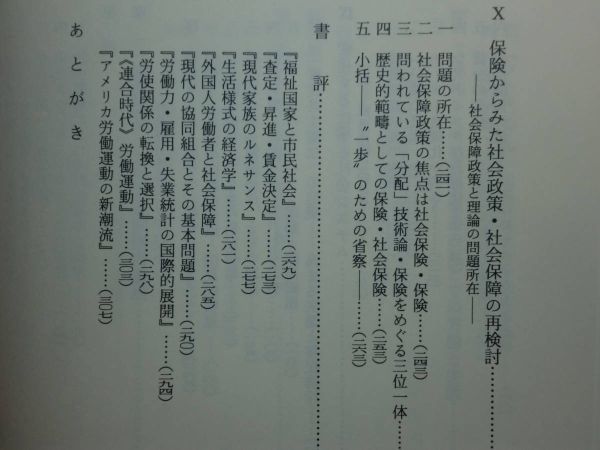 X 保険からみた社会政策・社会保障の再検討…………………
――社会保障政策と理論の問題所在――
一 問題の所在……(二四一)
二 社会保障政策の焦点は社会保険・保険……(二四三)
三 問われている「分配」技術論・保険をめぐる三位一体……
四 歴史的範疇としての保険・社会保険……(二五三)
五 小括――〝一歩〟のための省察――……(二六三)
書 評…………………………………………
『福祉国家と市民社会』……(二六九)
『査定・昇進・賃金決定』……(二七三)
『現代家族のルネサンス』……(二七七)
『生活様式の経済学』……(二八一)
『外国人労働者と社会保障』……(二八五)
『現代の協同組合とその基本問題』……(二九〇)
『労働力・雇用・失業統計の国際的展開』……(二九四)
『労使関係の転換と選択』……(二九八)
『《連合時代》労働運動』……(三〇三)
『アメリカ労働運動の新潮流』……(三〇七)
あとがき